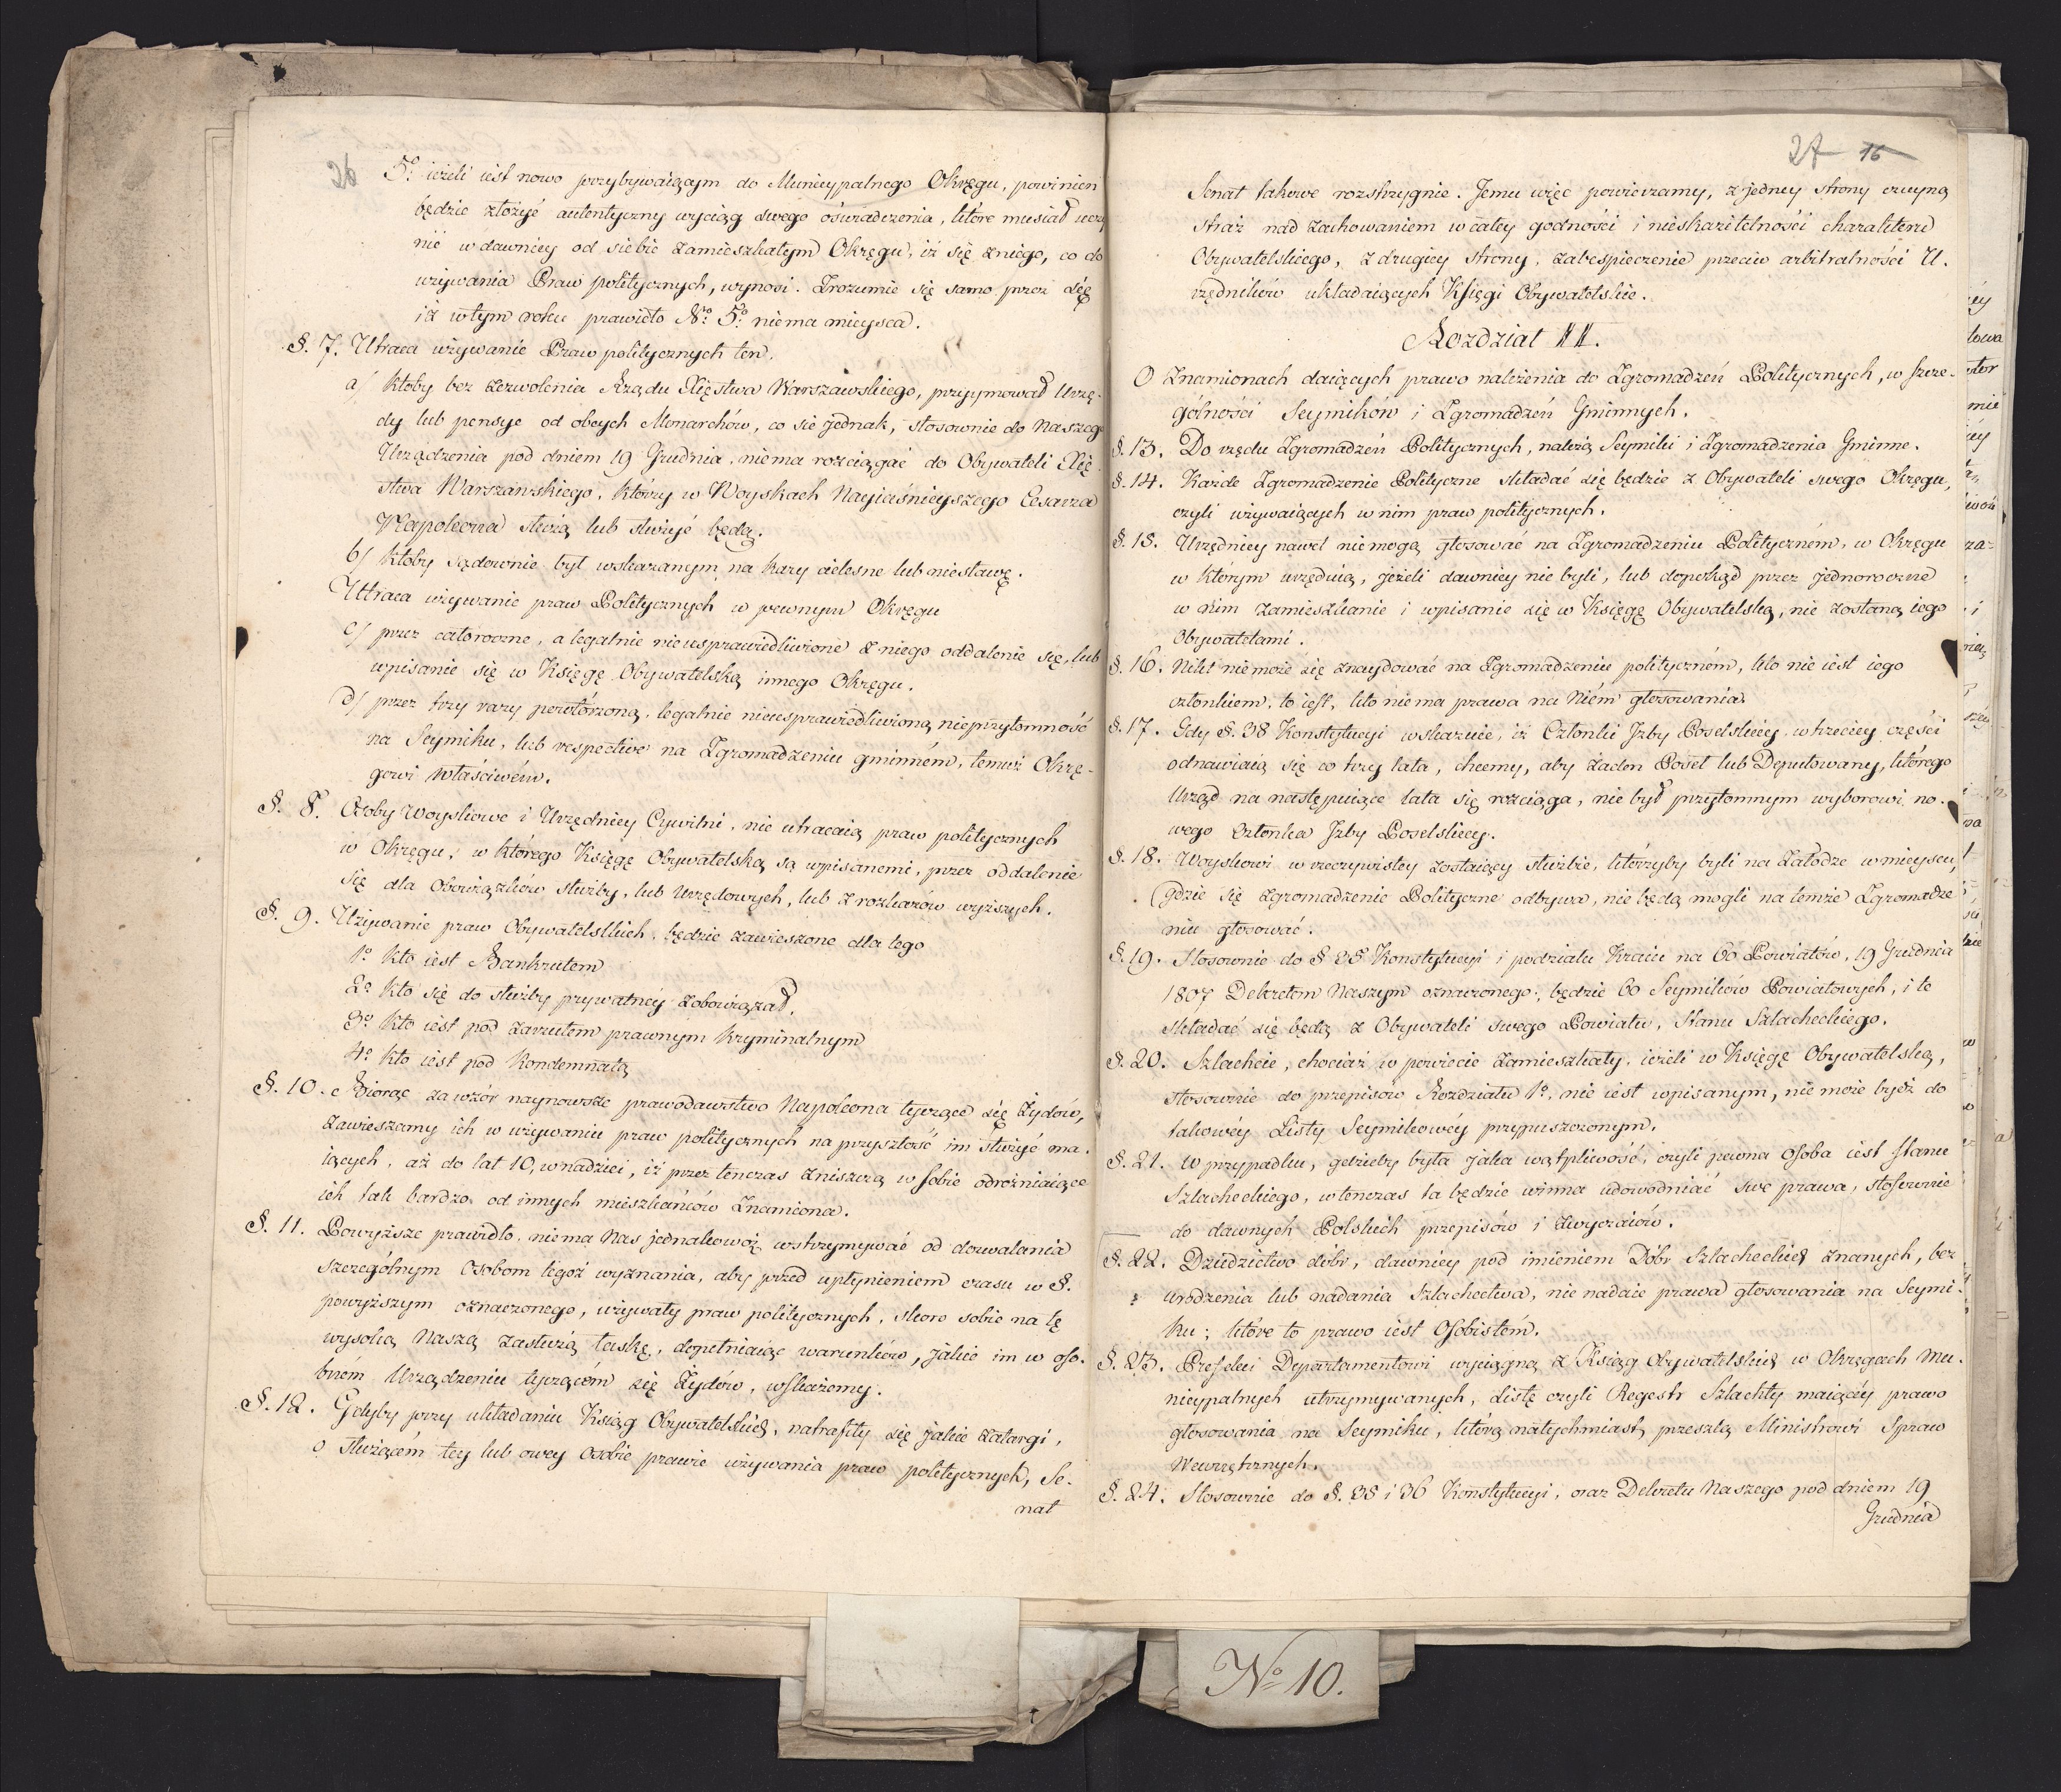 26
5º ieżeli iest nowo przybywaiącym do Municypalnego Okręgu, powinien
będzie złożyć autentyczny wyciąg swego oświadczenia, które musiał uczy
nić w dawniey od siebie zamieszkałym Okręgu, iż się z niego, co do
używania Praw politycznych, wynosi. Zrozumie się samo przez się
iż w tym roku prawidło Nro 5º niema mieysca.
§. 7. Utraca używanie Praw politycznych ten,
a/ ktoby bez zezwolenia Rządu Xięstwa Warszawskiego, przyymował Urzę-
dy lub pensye od obcych Monarchów, co sie jednak, stosownie do Naszego
Urządzenia pod dniem 19 Grudnia, niema rozciągać do Obywateli Xię-
stwa Warszawskiego, którzy w Woyskach Nayiaśnieyszego Cesarza
Napoleona służą lub służyć będą.
b/ ktoby sądownie był wskazanym na kary cielesne lub niesławę.
Utraca używanie praw Politycznych w pewnym Okręgu
c/ przez całoroczne, a legalnie nieusprawiedliwione z niego oddalenie się, lub
wpisanie się w Księgę Obywatelską innego Okręgu.
d/ przez trzy razy powtórzoną, legalnie nieusprawiedliwioną nieprzytomność
na Seymiku, lub respective na Zgromadzeniu gminném, temuż Okrę-
gowi właściwém.
§. 8. Osoby Woyskowe i Urzędnicy Cywilni, nie utracaią praw politycznych
w Okręgu, w którego Księgę Obywatelską są wpisanemi, przez oddalenie
się dla obowiązków służby, lub Urzędowych, lub z rozkazów wyższych.
§. 9. Używanie praw Obywatelskich, będzie zawieszone dla tego
1º kto iest Bankrutem
2º kto się do służby prywatnéy zobowiązał.
3º kto iest pod zarzutem prawnym kryminalnym
4º kto iest pod Kondemnatą
§. 10. Biorąc za wzór naynowsze prawodawstwo Napoleona tyczące się Żydów,
zawieszamy ich w używaniu praw politycznych na przyszłość im służyć ma-
iących, aż do lat 10, w nadziei, iż przez tenczas zniszczą w sobie odrożniaiące
ich tak bardzo od innych mieszkańców Znamiona.
§. 11. Powyższe prawidło, niema Nas jednakowoż wstrzymywać od dozwalania
szczególnym Osobom tegoż wyznania, aby przed upłynieniem czasu w §.
powyższym oznaczonego, używały praw politycznych, skoro sobie na tę
wysoką Naszą zasłużą łaskę, dopełniaiąc warunków, jakie im w oso-
bném Urządzeniu tyczącém się Żydów, wskażemy.
§. 12. Gdyby przy układaniu Ksiąg Obywatelskich, natrafiły się jakie zatargi,
o służącém tey lub owey Osobie prawie używania praw politycznych, Se-
nat
27 16
Senat takowe rozstrzygnie. Jemu więc powierzamy, z jedney strony czuyną
straż nad zachowaniem w całey godności i nieskazitelności charakteru
Obywatelskiego, z drugiey strony, zabespieczenie przeciw arbitralności U.
rzędników układaiących Księgi Obywatelskie.
Rozdział II.
O Znamionach daiących prawo należenia do Zgromadzeń Politycznych, w szcze-
gólności Seymików i Zgromadzeń Gminnych.
§. 13. Do rzędu Zgromadzeń Politycznych, należą Seymiki i Zgromadzenia Gminne.
§. 14. Każde Zgromadzenie Polityczne składać się będzie z Obywateli swego Okręgu,
czyli używaiących w nim praw politycznych.
§. 15. Urzędnicy nawet niemogą głosować na Zgromadzeniu Polityczném, w Okręgu
w którym urzęduią, jeżeli dawniey nie byli, lub dopokąd przez jednoroczne
w nim zamieszkanie i wpisanie się w Księgę Obywatelską, nie zostaną iego
Obywatelami.
§. 16. Nikt niemoże się znaydować na Zgromadzeniu polityczném, kto nie iest iego
członkiem, to iest, kto niema prawa na Niém głosowania.
§. 17. Gdy §. 38 Konstytucyi wskazuie, iż Członki Izby Poselskiey w trzeciey części
odnawiaią się co trzy lata, chcemy, aby żaden Poseł lub Deputowany, którego
Urząd na następuiące lata się rozciąga, nie był przytomnym wyborowi no-
wego Członka Izby Poselskiey.
§. 18. Woyskowi w rzeczywistey zostaiący służbie, którzyby byli na Załodze w mieyscu,
gdzie się zgromadzenie Polityczne odbywa, nie będą mogli na temże Zgromadze
niu głosować.
§. 19. Stosownie do § 25 Konstytucyi i podziału Kraiu na 60 Powiatów, 19 Grudnia
1807 Dekretem Naszym oznaczonego, będzie 60 Seymików Powiatowych, i te
składać się będą z Obywateli swego Powiatu, Stanu Szlacheckiego.
§. 20. Szlachcic, chociaż w powiecie zamieszkały, ieżeli w Księgę Obywatelską,
stosownie do przepisów Rozdziału 1º, nie iest wpisanym, nie może bydź do
takowéy Listy Seymikowéy przypuszczonym.
§. 21. W przypadku, gdzieby była jaka wątpliwość, czyli pewna osoba iest stanu
Szlacheckiego, wtenczas ta będzie winna udowodniać swe prawa, stosownie
do dawnych Polskich przepisów i zwyczaiów.
§. 22. Dziedzictwo dóbr, dawniey pod imieniem Dóbr Szlacheckich znanych, bez
urodzenia lub nadania Szlachectwa, nie nadaie prawa głosowania na Seymi-
ku; które to prawo iest Osobistém.
§. 23. Prefekci Departamentowi wyciągną z Ksiąg Obywatelskich w Okręgach Mu-
nicypalnych utrzymywanych, Listę czyli Regestr Szlachty maiącéy prawo
głosowania na Seymiku, którą natychmiast przeszlą Ministrowi Spraw
Wewnętrznych.
§. 24. Stosownie do §. 35 i 36 Konstytucyi, oraz Dekretu Naszego pod dniem 19
Grudnia
No 10.